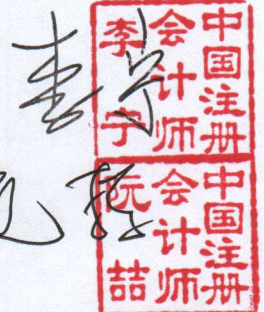 中国注册
会计师
李宁
中国注册
会计师
阮喆